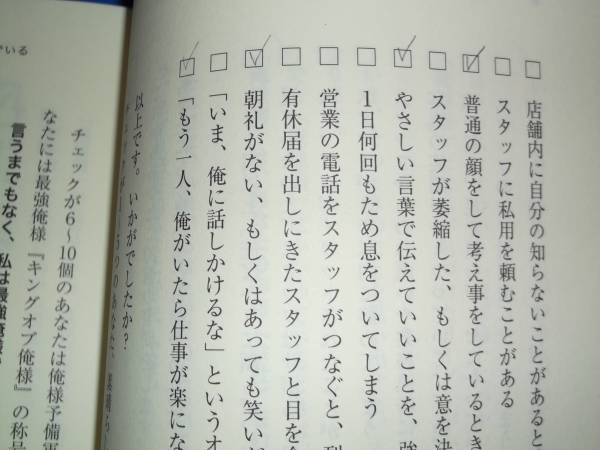 □ 店舗内に自分の知らないことがあると
□ スタッフに私用を頼むことがある
☑ 普通の顔をして考え事をしているとき
□ スタッフが萎縮した、もしくは意を決
☑ やさしい言葉で伝えていいことを、強
□ 1日何回もため息をついてしまう
□ 営業の電話をスタッフがつなぐと、
□ 有休届を出しにきたスタッフと目を
☑ 朝礼がない、もしくはあっても笑い
□ 「いま、俺に話しかけるな」という
☑ 「もう一人、俺がいたら仕事が楽にな
以上です。いかがでしたか？
ている
チェックが6〜10個のあなたは俺様予備軍
なたには最強俺様『キングオブ俺様』の称号
言うまでもなく、私は最強俺様